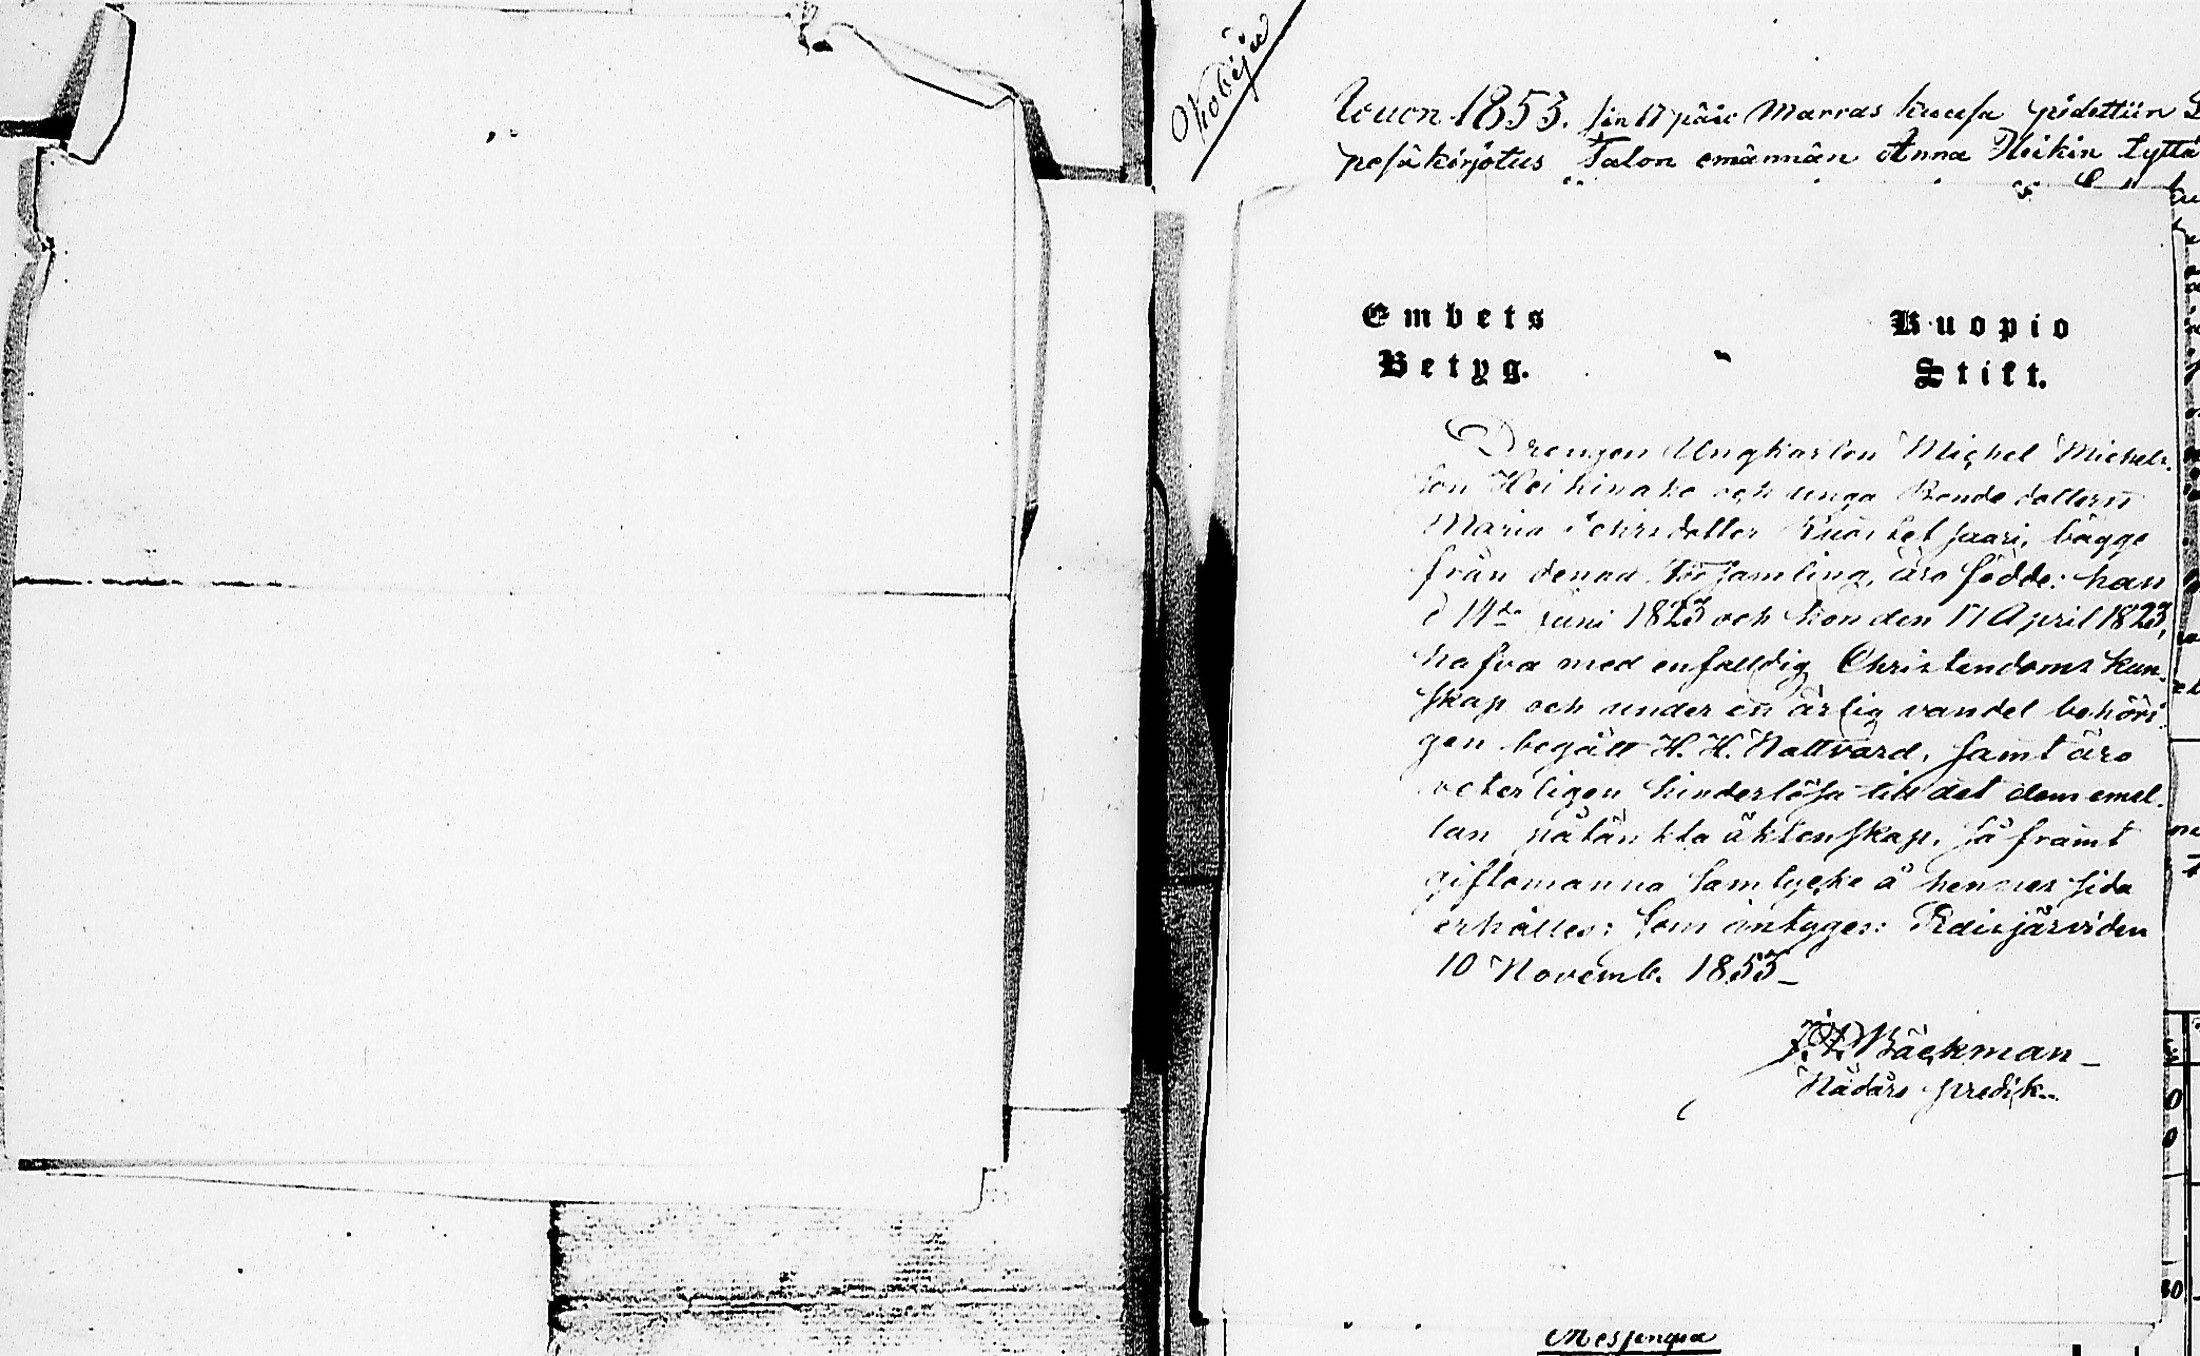 Wuon 1853. sin 17 päiw Marras kuusa pidettiin
pesäkirjotus Talon emännän Anna Heikin tyttä
Embets
Betyg.
Kuopio
Stift.
Drengen Ungkarlen Michel Michels-
son Heikinaho och unga Bonde dottern
Maria Dotter saari, bägge
från denna Församling, äro födde: han
d 14de Juni 1823 och hon den 17 April 1823,
hafva med enfalldig Christendoms kun-
skap och under en ärlig vandel behöri-
gen begått H. H. Nattvard, samt äro
veterligen hinderlösa till det dem emel-
lan påtänkta äktenskap, så framt
giftomanna samtycke å hennes sida
erhålles; Som intygar: Reisjärvi den
10 Novemb. 1853
Bäckman
Nådårs predik.
Messingiä